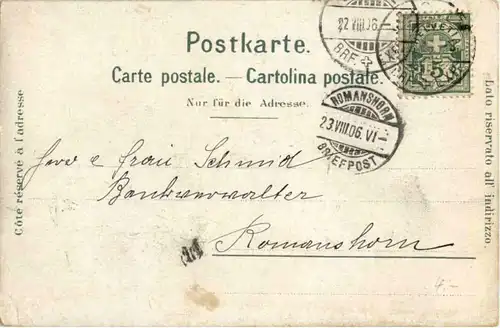 22 VIII 06.
BRF.
5
Postkarte.
Carte postale. — Cartolina postale.
Nur für die Adresse.
ROMANSHORN
23.VIII.06. VI–
BRIEFPOST
Côté réservé à l'adresse
Lato riservato all' indirizzo.
Herr & Frau Schmid
Bankverwalter
Romanshorn
4.-